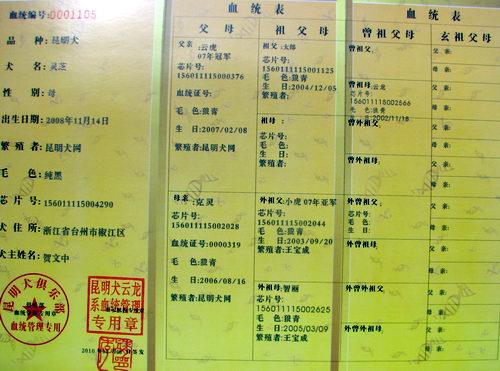 血统编号:0001105
品 种:昆明犬
犬 名:灵芝
性 别:母
出生日期:2008年11月14日
繁殖者:昆明犬网
毛 色:纯黑
芯 片 号:156011115004290
犬 住 所:浙江省台州市椒江区
犬主姓名:贺文中
昆明犬俱乐部
血统管理专用
昆明犬云龙
系血统管理
专用章
血统表
父母
父亲:云虎
07年冠军
芯片号:
156011115000376
血统证号:
毛 色:狼青
生 日:2007/02/08
繁殖者:昆明犬网
母亲:克灵
芯片号:
156011115002028
血统证号:
号:0000319
生 日:2006/08/16
繁殖者:昆明犬网
祖父母
祖父:太郎
芯片号:
156011115001125
毛 色:狼青
生 日:2004/12/05
繁殖者:
祖母:
芯片号:
毛 色:
生 日:
繁殖者:
外祖父:小虎 07年亚军
芯片号:
156011115002044
毛 色:狼青
生 日:2003/09/20
繁殖者:王宝成
外祖母:智丽
芯片号:
156011115002625
毛 色:狼青
生 日:2005/03/09
繁殖者:王宝成
血统表
曾祖父母
曾祖父:
曾祖母:云龙
芯片号:
156011115002566
毛 色:狼青
生 日:2002/11/18
曾外祖父:
曾外祖母:
外曾祖父:
芯片号:
毛 色:
生 日:
外曾祖母:
外曾外祖父:
外曾外祖母:
玄祖父母
父亲:
母亲:
父亲:
母亲:
父亲:
母亲:
父亲:
母亲:
父亲:
母亲:
父亲:
母亲:
父亲:
母亲:
父亲:
母亲: